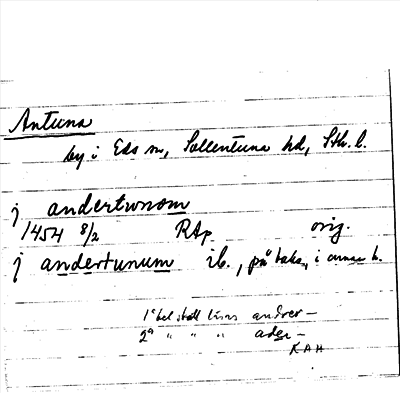 Antuna
by i Eds sn, Sollentuna hd, Sth. l.
j andertunom
1454 8/2 RAp orig.
j andertunum ib., på baks., i annan h.
1a bel. ställ läses andver-
2a " " " ader-
KAH